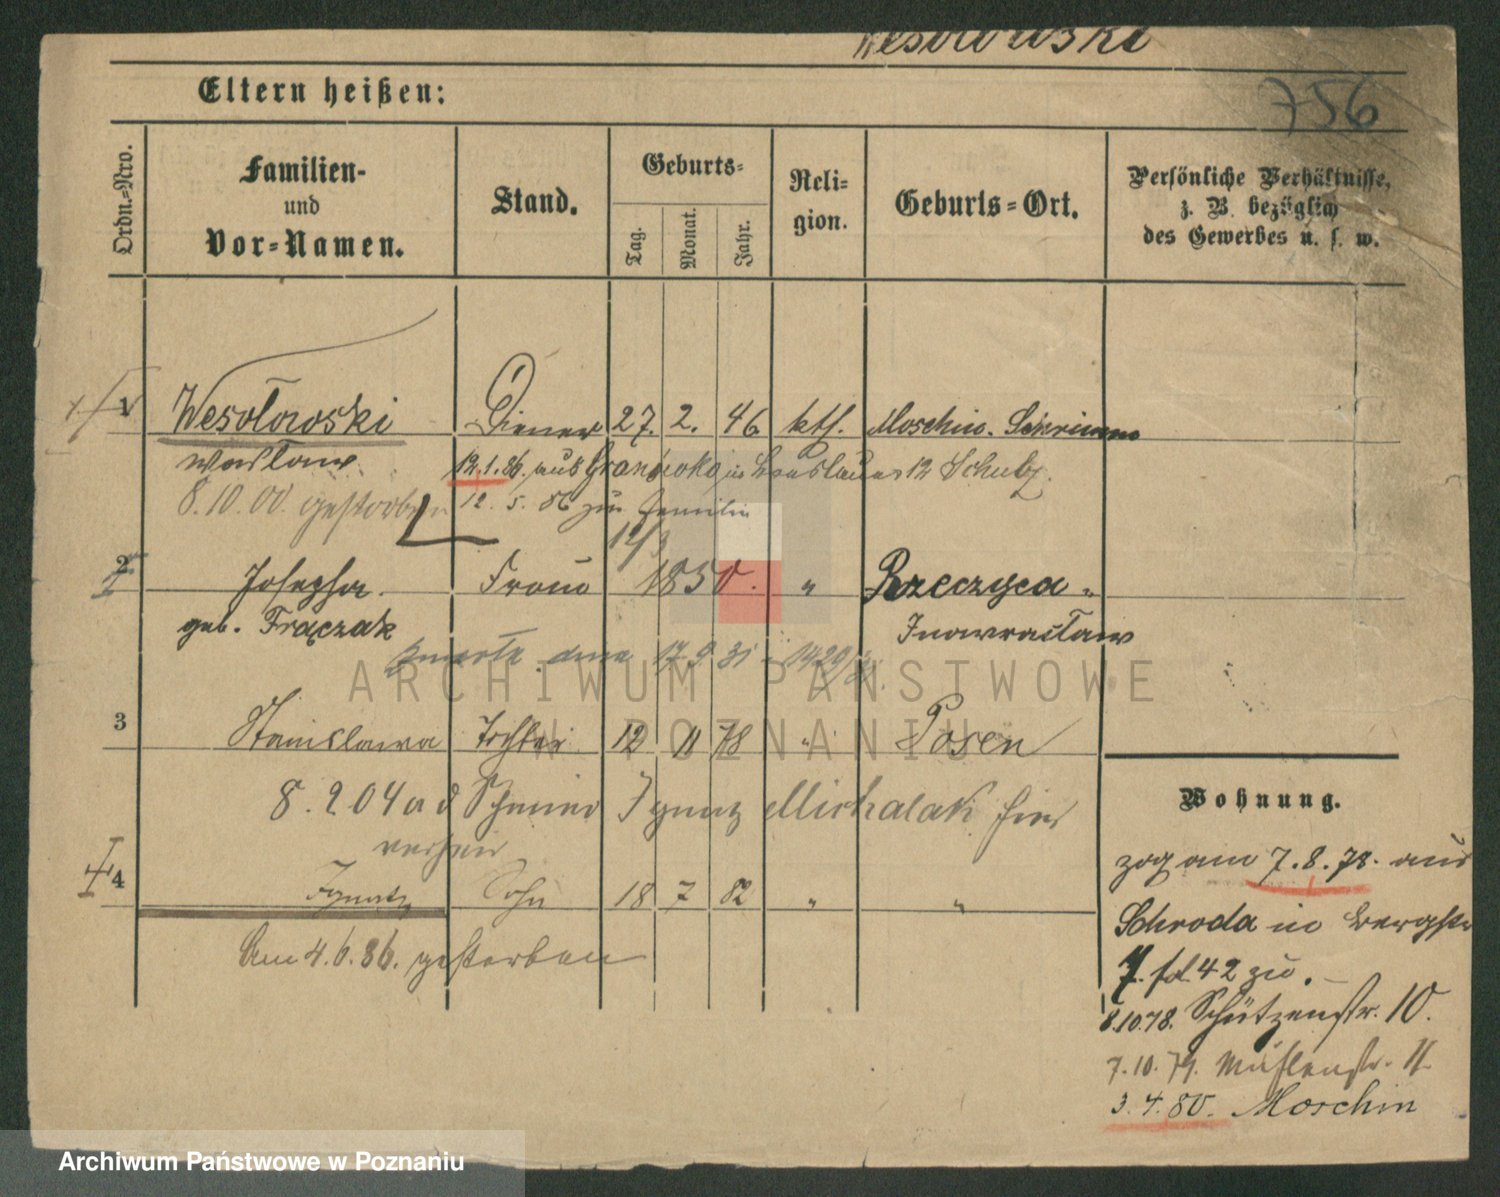 Wesołowski
756
Eltern heißen:
Ordn.=Nro.
Familien-
und
Vor=Namen.
Stand.
Geburts=
Tag.
Monat.
Jahr.
Reli=
gion.
Geburts=Ort.
Persönliche Verhältnisse,
z. B. bezüglich
des Gewerbes u. s. w.
1 Wesołowski Diener 27. 2. 46 kth. Moschin. Schrimm
12.1.86. aus in Breslauer 12 Schulz.
8.10.00. gestorben 12. 5. 86 zur Familie
12/3
2 Josepha. Frau 1850. " Rzeczyca
geb. Frączak Inowracław
zmarła dnia 17 9 31
3 Stanislawa Tochter 12 11 78 " Posen
8.2 04 a d Ignatz Michalak hier
4 Ignatz Sohn 18 7 82 " "
Am 4.6.86. gestorben
Wohnung.
zog am 7.8.78. aus
Schroda in Bergstr
7. fol. 42 zu.
8.10.78. Schützenstr. 10.
7.10.79. Mühlenstr. 11
3.4.80. Moschin
ARCHIWUM PAŃSTWOWE
W POZNANIU
Archiwum Państwowe w Poznaniu